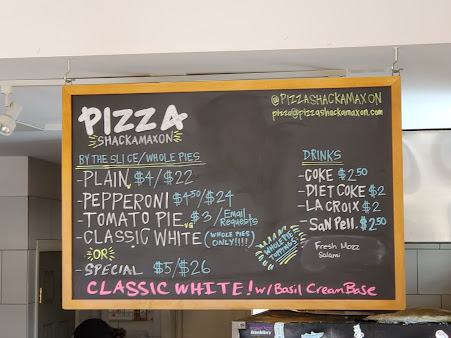 PIZZA
SHACKAMAXON
@PIZZASHACKAMAXON
pizza@pizzashackamaxon.com
BY THE SLICE/WHOLE PIES
-PLAIN V $4/$22
-PEPPERONI $4.50/$24
-TOMATO PIE VG $3/Email Requests
-CLASSIC WHITE (WHOLE PIES ONLY!!!!)
"OR"
-SPECIAL $5/$26
CLASSIC WHITE! w/Basil Cream Base
DRINKS
-COKE $2.50
-DIET COKE $2
-LA CROIX $2
-SAN PELL. $2.50
WHOLE PIE TOPPINGS
Fresh Mozz
Salami